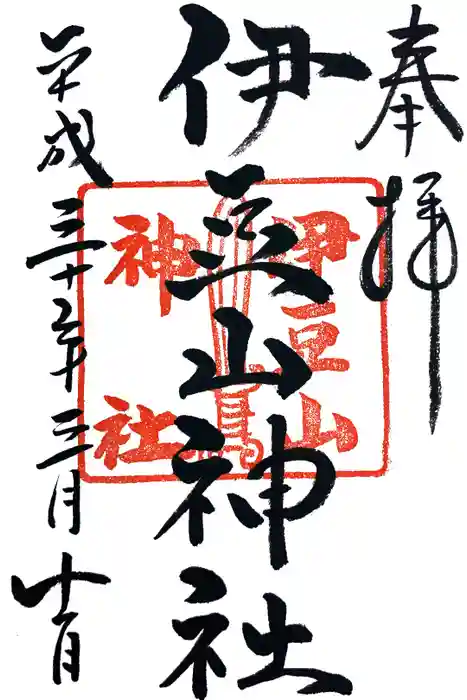 奉拝
伊豆山神社
平成三十年三月十一日
伊豆山
神社